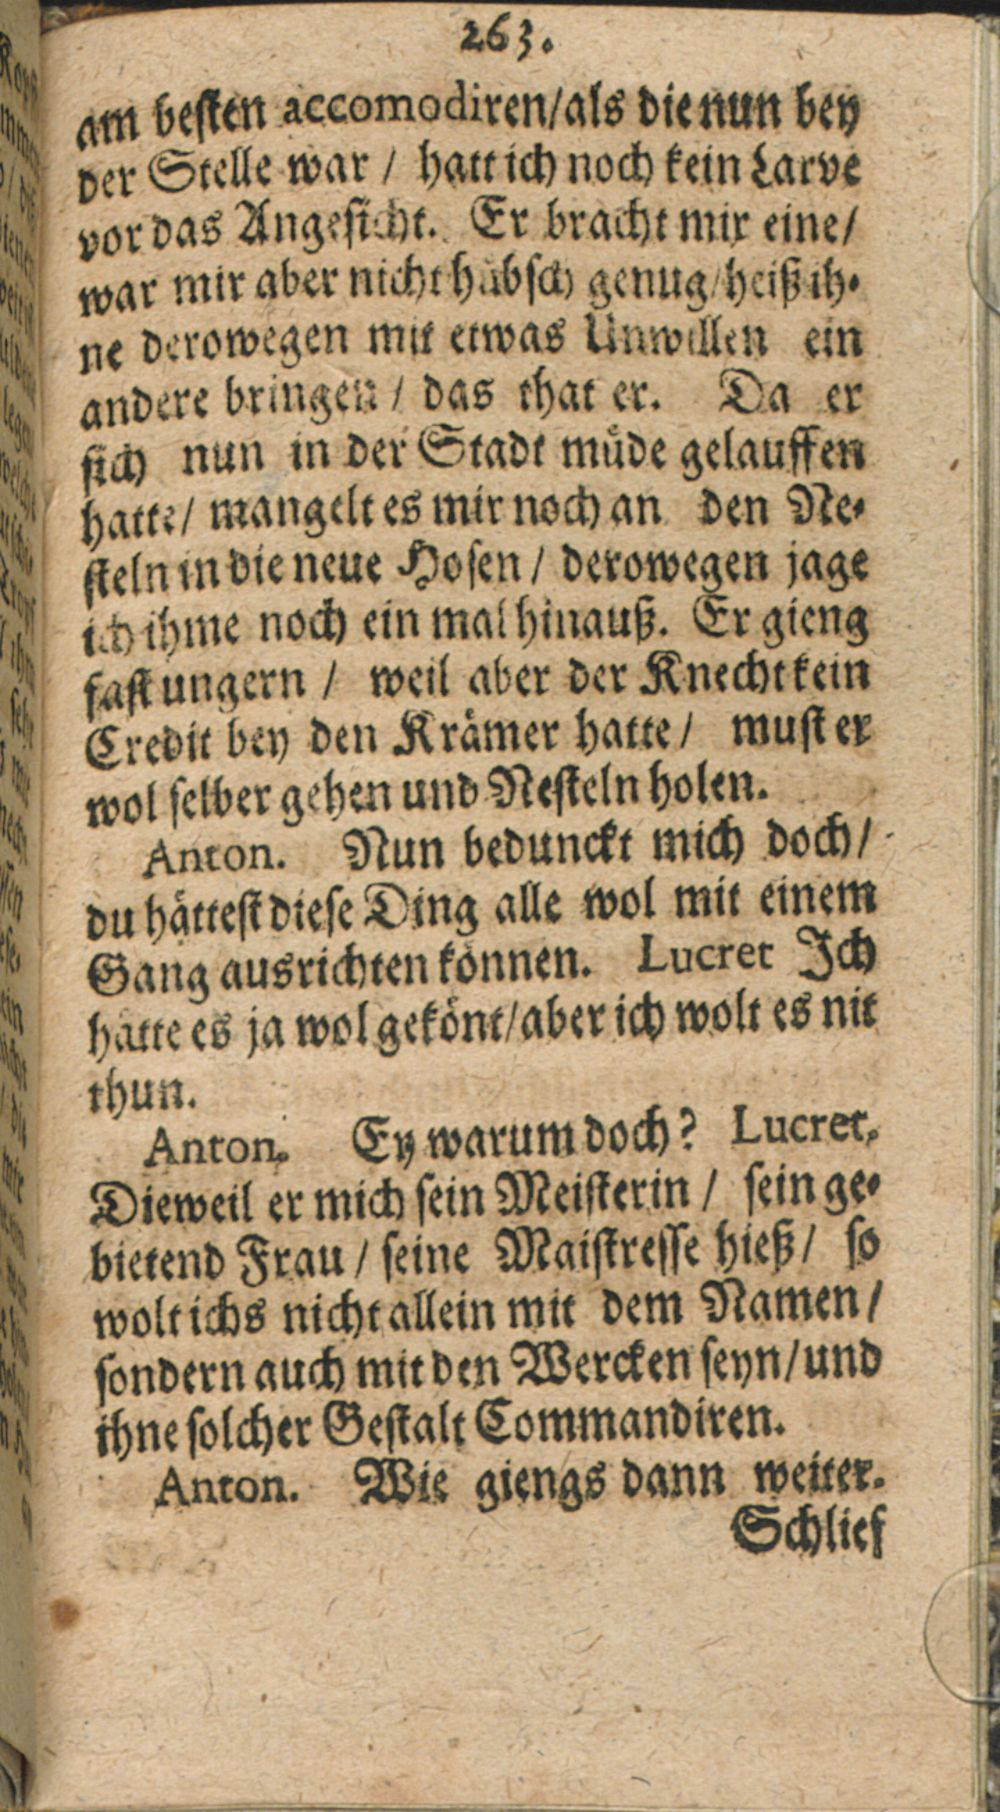 263.
am besten accomodiren/als die nun bey
der Stelle war / hatt ich noch kein Larve
vor das Angesicht. Er bracht mir eine/
war mir aber nicht hübsch genug/heiß ih-
ne derowegen mit etwas Unwillen ein
andere bringen / das that er. Da er
sich nun in der Stadt müde gelauffen
hatte/ mangelt es mir noch an den Ne-
steln in die neue Hosen / derowegen jage
ich ihme noch ein mal hinauß. Er gieng
fast ungern / weil aber der Knecht kein
Credit bey den Krämer hatte / must er
wol selber gehen und Nesteln holen.
Anton. Nun bedunckt mich doch/
du hättest diese Ding alle wol mit einem
Gang ausrichten können. Lucret Ich
hätte es ja wol gekönt/aber ich wolt es nit
thun.
Anton. Ey warum doch? Lucret.
Dieweil er mich sein Meisterin / sein ge-
bietend Frau / seine Maistresse hieß / so
wolt ichs nicht allein mit dem Namen /
sondern auch mit den Wercken seyn/und
ihne solcher Gestalt Commandiren.
Anton. Wie giengs dann weiter.
Schlief